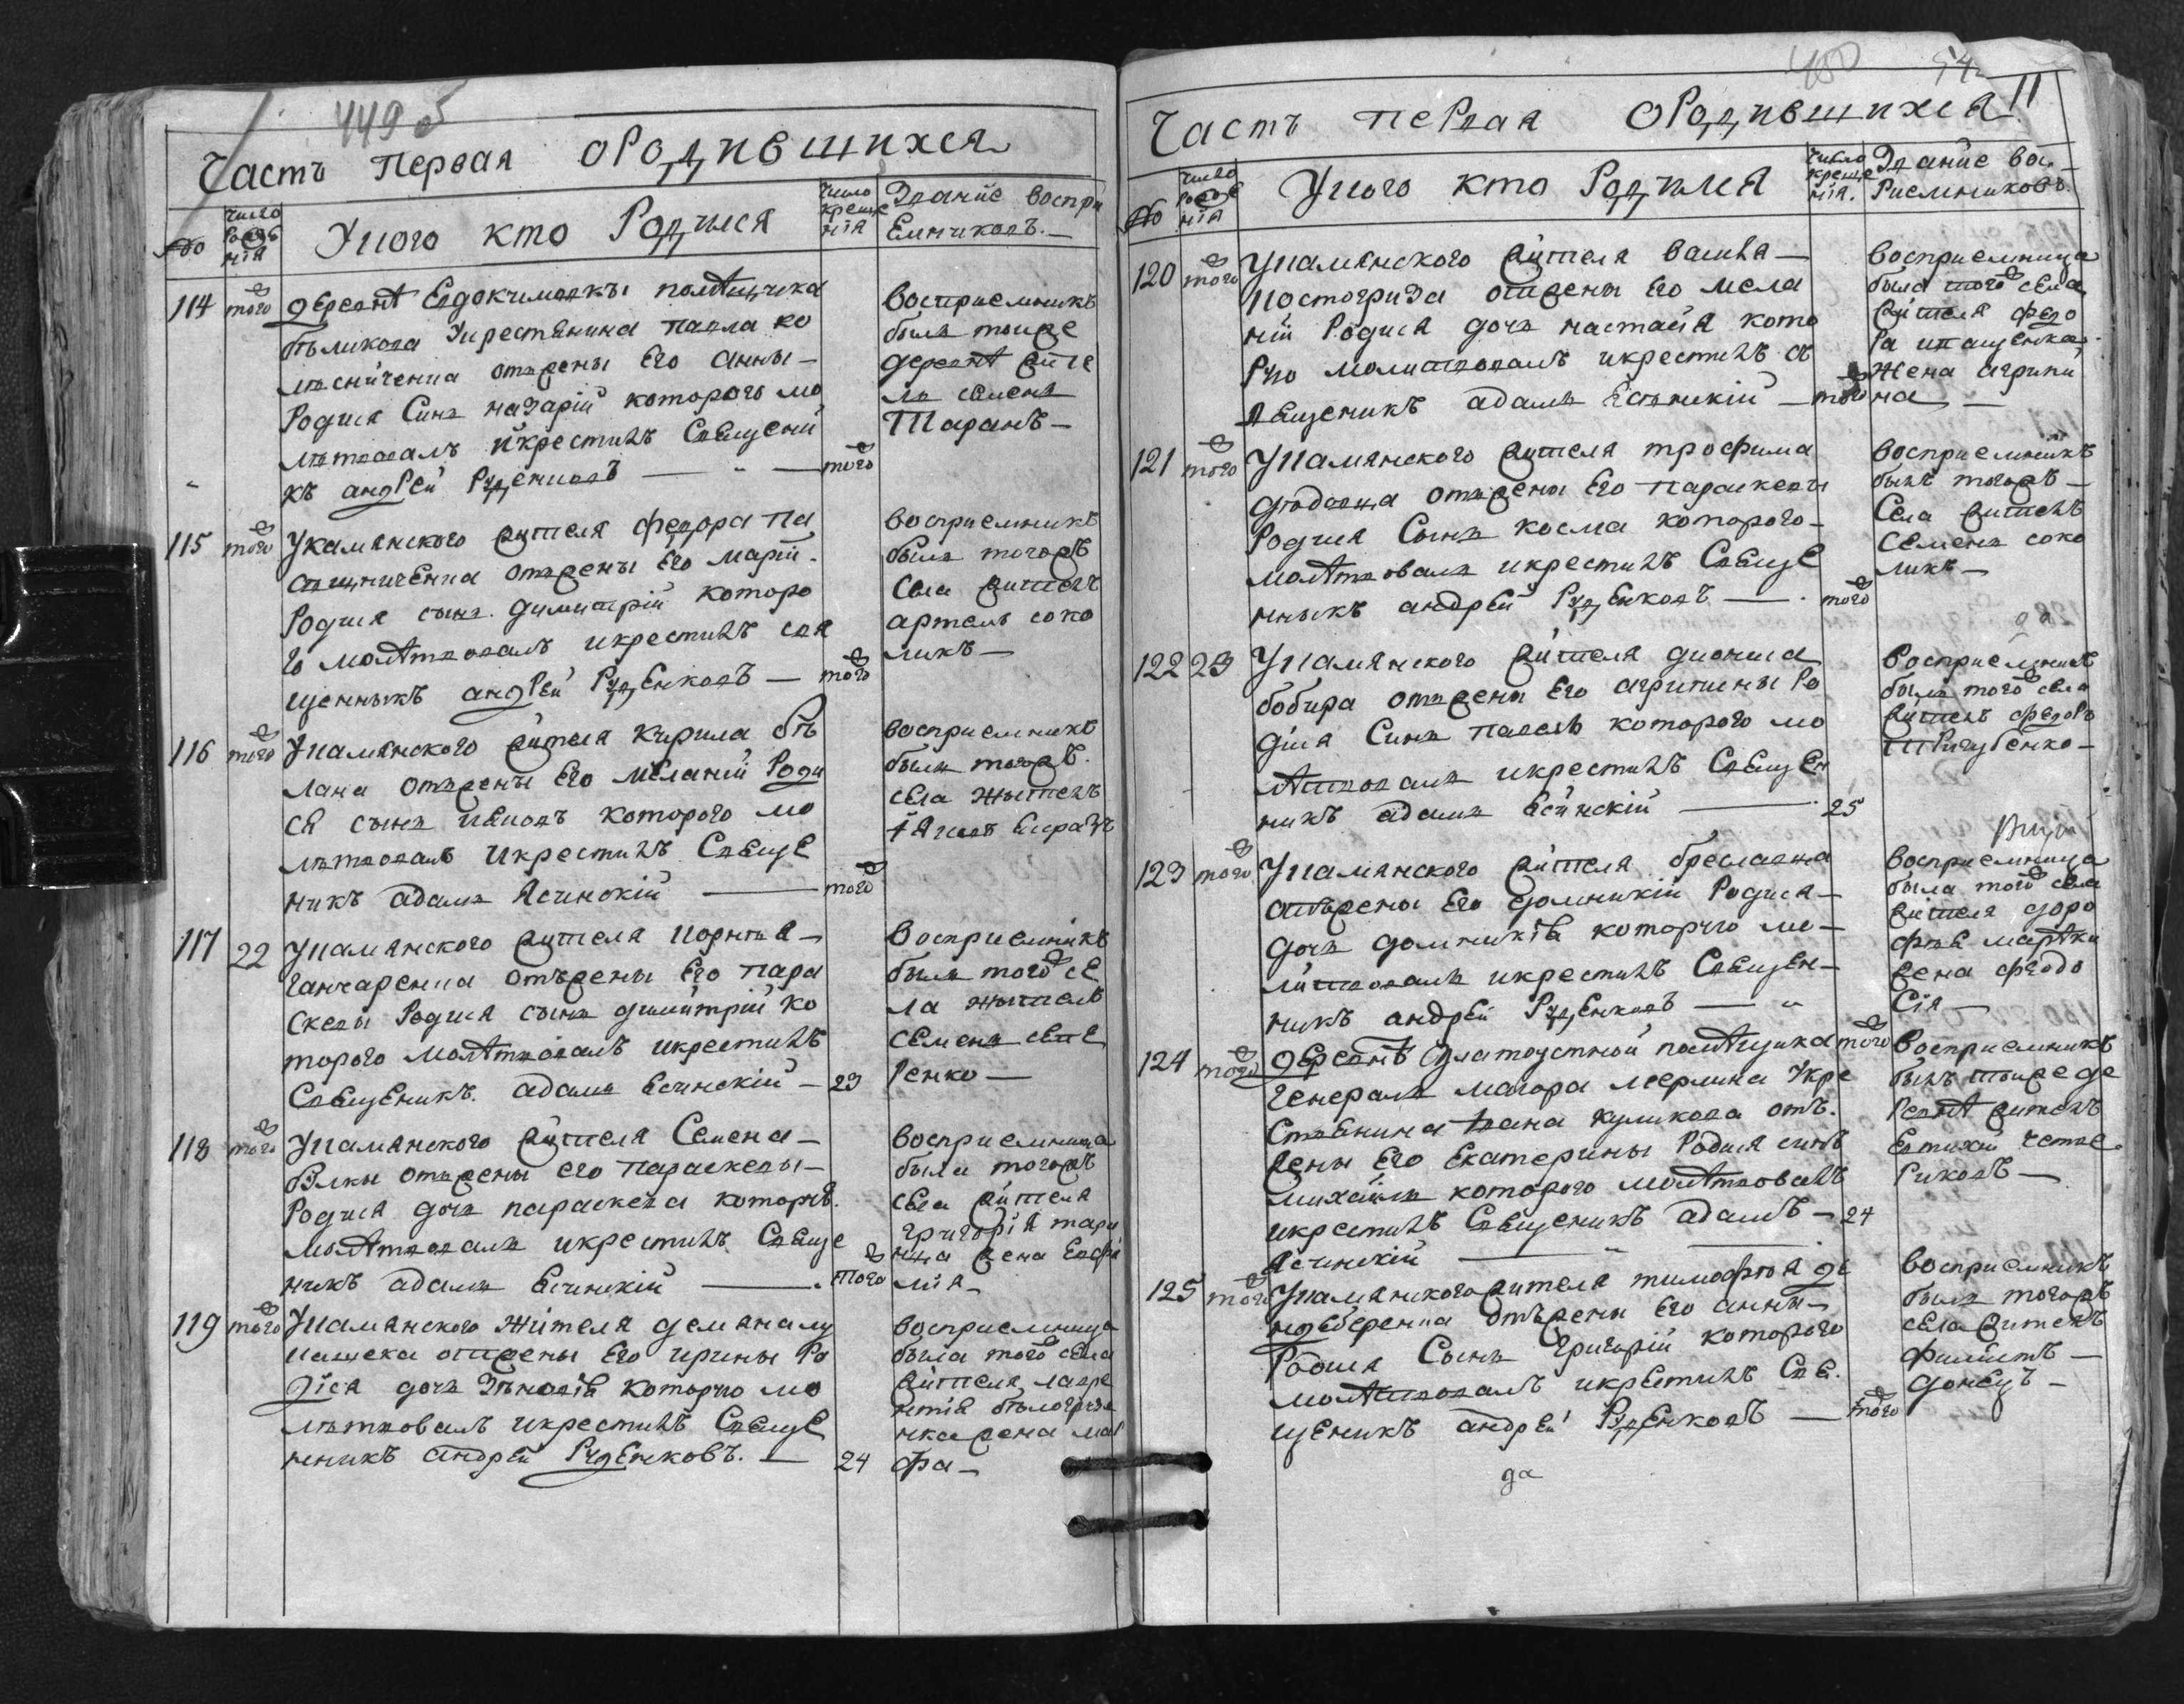 449 об
Часть первая о Родившихся
№
число рожденія
Уного кто Родился
число крещенія
Званіе воспри
Емниковъ.
114 того
деревнѣ Евдокимовкы помѣщика
Бѣликова Укрестянина павла ко
лесниченка отжены Его анны
Родился Синъ назарій которого мо
литвовалъ икрестилъ Священи
къ андрей Руденковъ — того
восприемникъ
былъ тоиже
деревнѣ жите
ль семенъ
Таранъ
115 того
Укаманского жителя федора па
сещниченка отжены Его маріи
Родился сынъ димитрій которо
го молитвовалъ икрестилъ свя
щенныкъ андрей Руденковъ — того
восприемникъ
былъ тогожъ
Села житель
артемъ соко
ликъ
116 того
Укаманского жителя кирила бѣ
лана отжены Его меланіи Роди
ся сынъ иковъ которого мо
литвовалъ икрестилъ Священ
никъ адамъ Ясинскій — того
восприемникъ
былъ тогожъ
села жытель
117 22
Укаманского жителя корнѣя
ганчаренка отъжены Его пара
скевы Родился сынъ димитрій ко
торого молитвовалъ икрестилъ
Священикъ адамъ Есинскій — 23
восприемникъ
былъ того се
ла жытель
семенъ
ренко
118 того
Укаманского жителя Семена
Вілкы отжены его параскевы
Родился дочь параскева которую
молитвовалъ икрестилъ Священ
никъ адамъ Есинскій — того
восприемница
была тогожъ
села жителя
григорія тара
на жена Евфи
мія
119 того
Укаманского жітеля демяна лу
кашека отжены Его ирины Ро
діся дочь Зѣновія которую мо
литвовалъ икрестилъ Священ
нникъ андрей Руденковъ. — 24
восприемница
была того села
жителя лавре
нтія бѣлогруз
нка жена мар
фа
400 94
11
Часть первая о Родившихся
№
число рожденія
Уного кто Родился
число крещенія.
Званіе вос
Риемниковъ.
120 того
Укаманского жителя василя
постогриза отжены Его мела
ніи Родился дочь настасія кото
рую молитвовалъ икрестилъ св
ященикъ адамъ Есѣнскій — того
восприемница
была того села
жителя федо
ра
жена агрипи
на
121 того
Укаманского жителя трофима
отжены Его параскевы
Родился Сынъ косма которого
молитвовалъ икрестилъ Священ
ныкъ андрей Руденковъ — того
восприемникъ
былъ тогожъ
Села житель
Семенъ соко
ликъ
122 23
Укаманского жителя диониса
бобира отжены Его агрипины Ро
дися Синъ павелъ которого мо
литвовалъ икрестилъ Священ
никъ адамъ Есинскій — 25
восприемникъ
былъ того села
житель федоръ
123 того
Укаманского жителя бреславца
отъжены Его домникіи Родися
дочь домникія которую мо
литвовалъ икрестилъ Священ
никъ андрей Руденковъ — того
восприемница
была того села
жителя доро
фѣя
жена феодо
сія
124 того
деревнѣ Златоустной помѣщика
Генерала маіора мерлина Укре
стянина Ивана куликова отъ
жены Его Екатерины Родился синъ
михаилъ которого молитвовалъ
икрестилъ Священикъ адамъ — 24
Ясинскій
восприемникъ
былъ тоиже де
ревнѣ житель
Евтихій четве
риковъ
125 того
Укаманского жителя тимофѣя де
ндеберенка отъжены Его анны
Родился Сынъ григорій которого
молитвовалъ икрестилъ Свя
щеникъ андрей Руденковъ — того
восприемникъ
былъ тогожъ
села житель
филипъ
донецъ
да